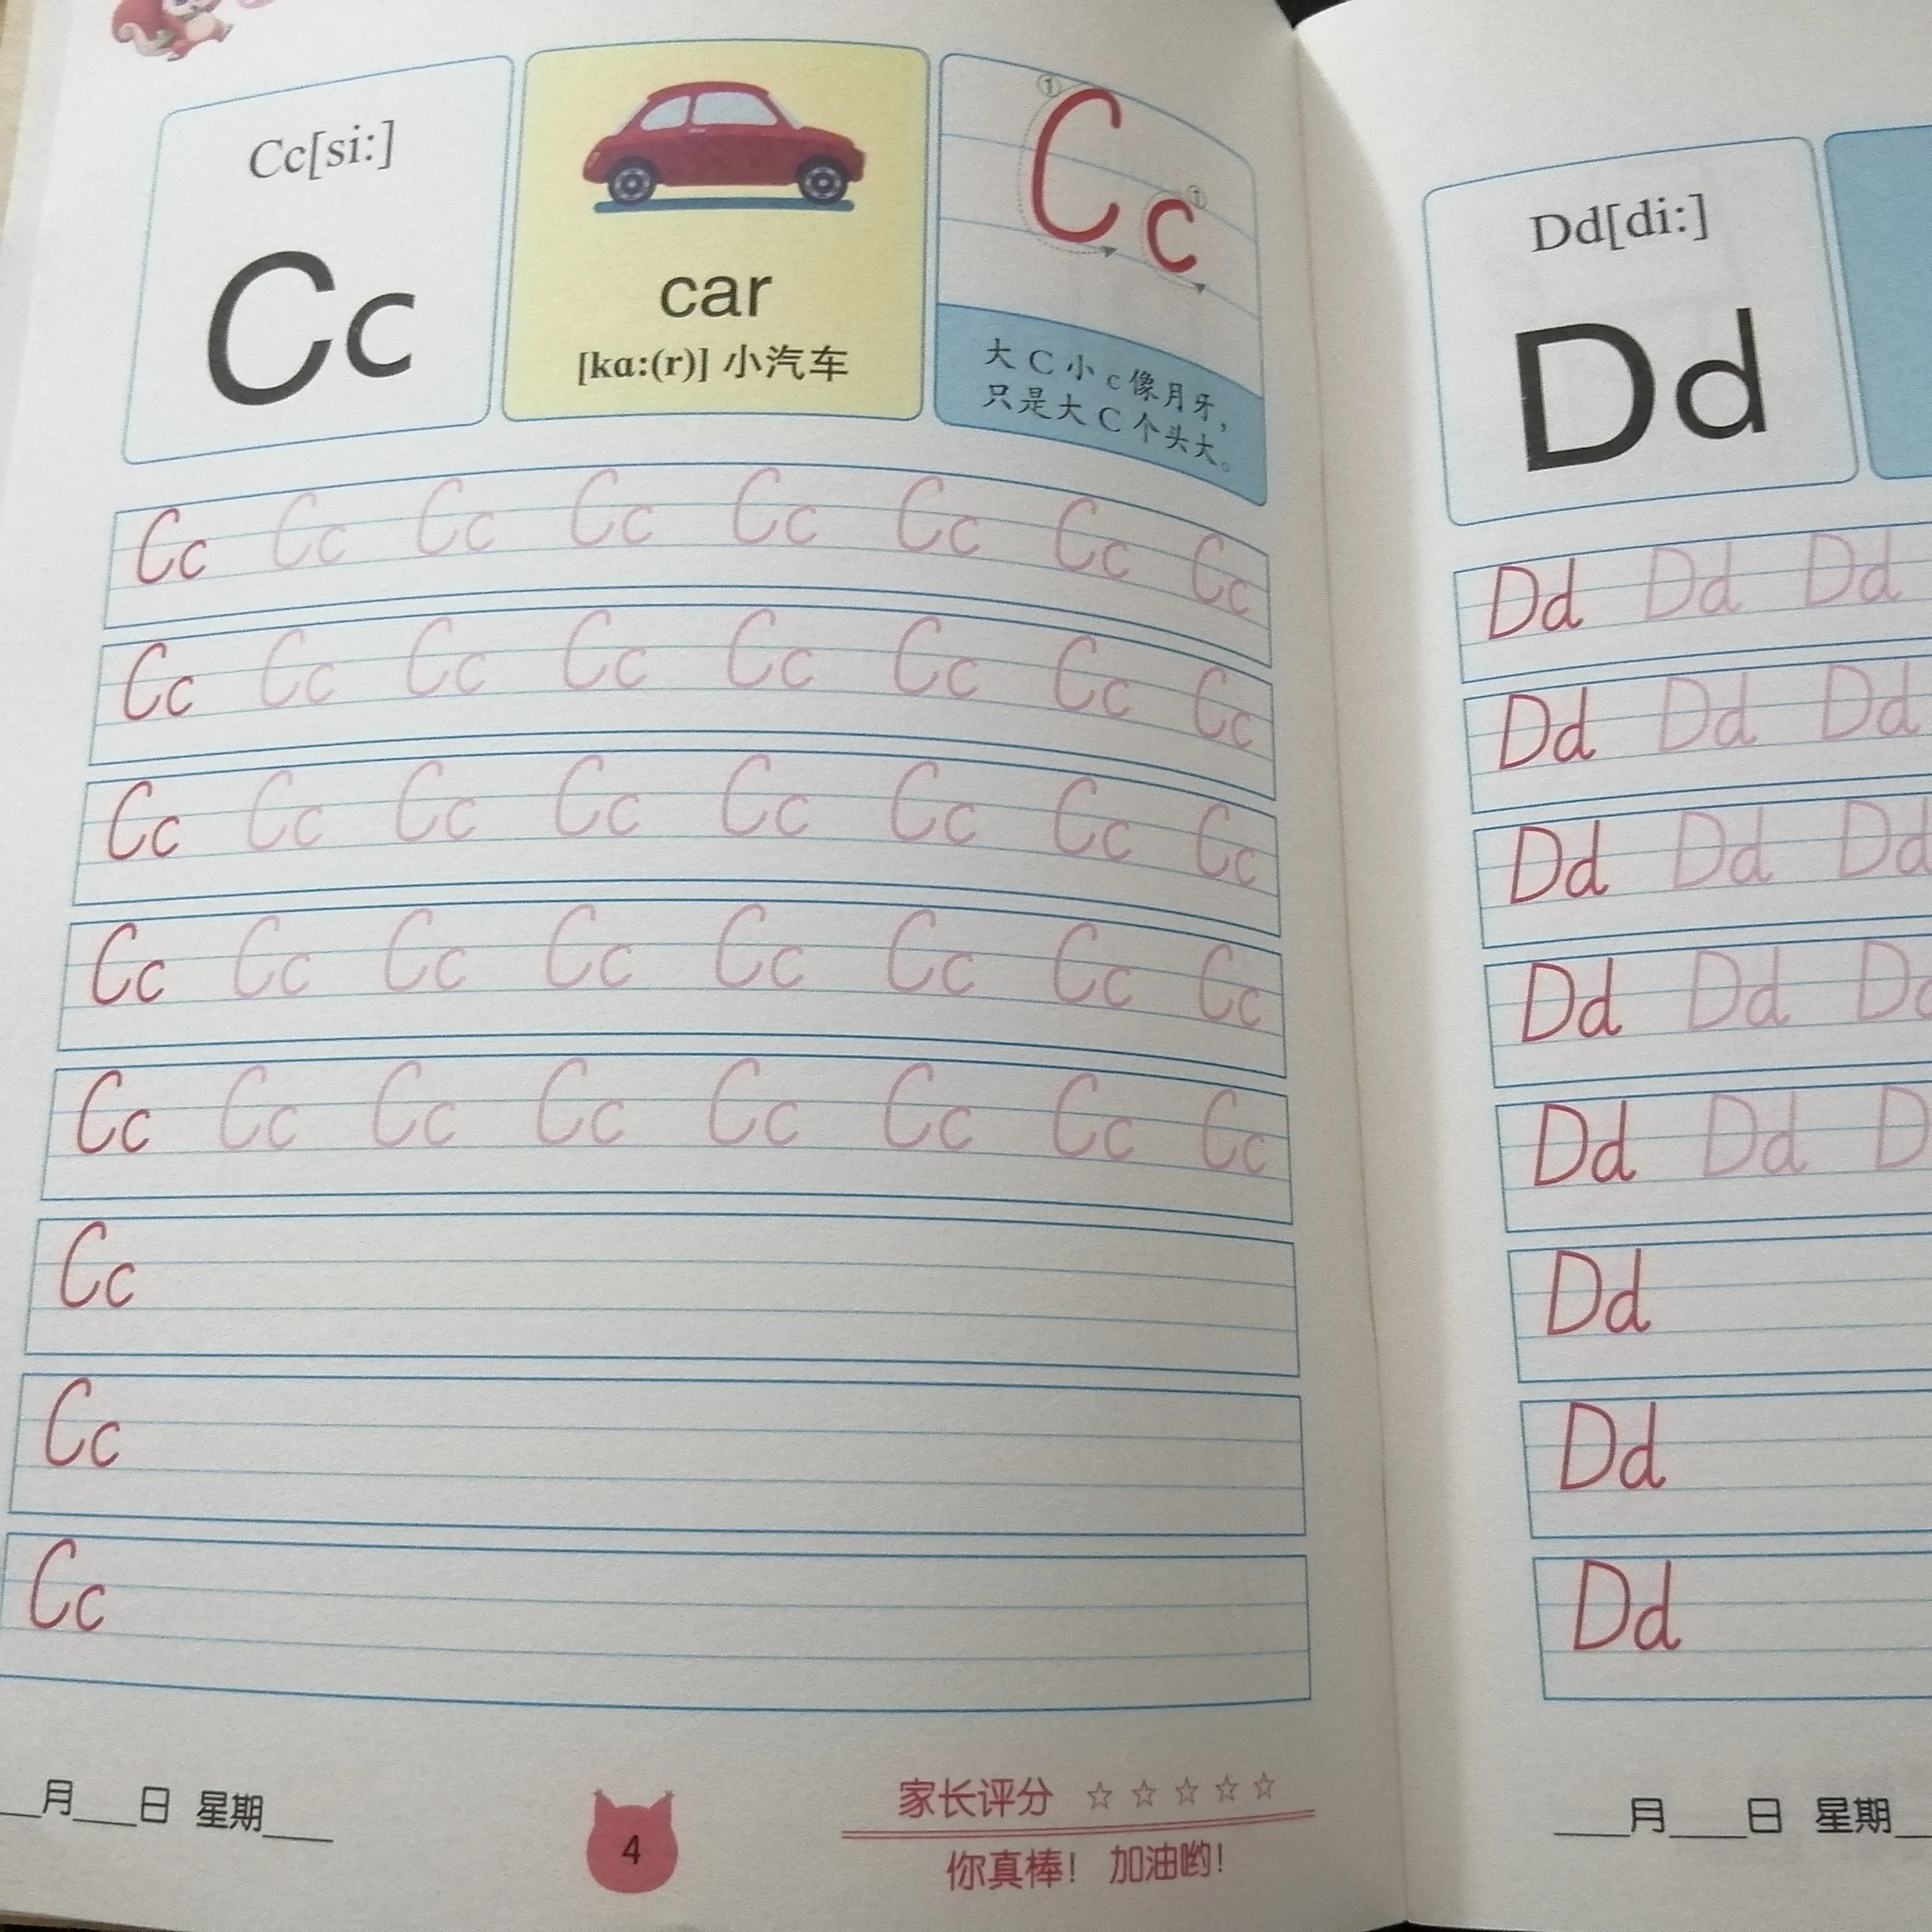 Cc[si:]
Cc
car
[kɑ:(r)] 小汽车
① ①
Cc
大 C 小 c 像月牙，
只是大 C 个头大。
Cc Cc Cc Cc Cc Cc Cc Cc
Cc Cc Cc Cc Cc Cc Cc Cc
Cc Cc Cc Cc Cc Cc Cc Cc
Cc Cc Cc Cc Cc Cc Cc Cc
Cc Cc Cc Cc Cc Cc Cc Cc
Cc
Cc
Cc
__月___日 星期___
4
家长评分 ☆ ☆ ☆ ☆ ☆
你真棒！ 加油哟！
Dd[di:]
Dd
Dd Dd Dd
Dd Dd Dd
Dd Dd Dd
Dd Dd Dd
Dd Dd D
Dd
Dd
Dd
___月___日 星期_